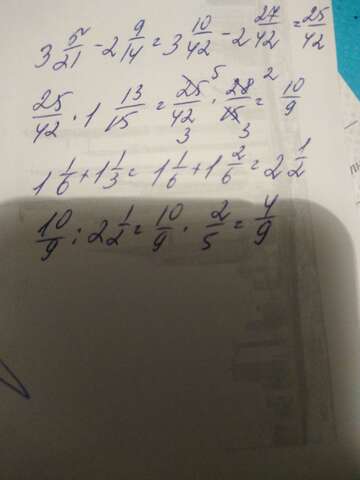 3 5/21 - 2 9/14 = 3 10/42 - 2 27/42 = 25/42
25/42 · 1 13/15 = 25/42 · 28/15 = 10/9 5 2 3 3
1 1/6 + 1 1/3 = 1 1/6 + 1 2/6 = 2 1/2
10/9 : 2 1/2 = 10/9 · 2/5 = 4/9